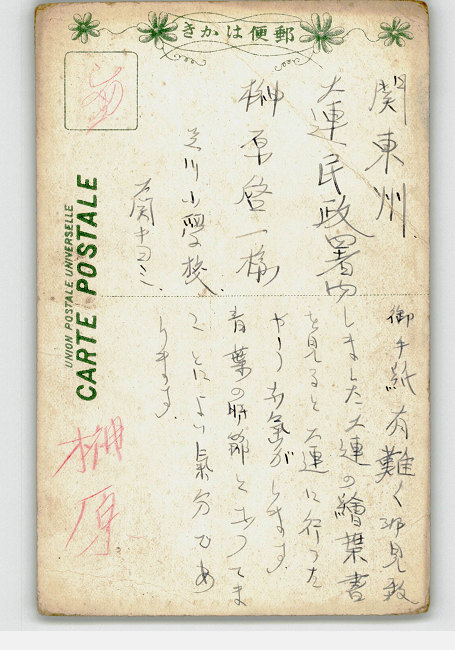 郵便はかき
UNION POSTALE UNIVERSELLE
CARTE POSTALE
關東州
大連民政署内
榊原啓一様
芝川小學校
榊原
御手紙有難く拝見致
しました大連の繪葉書
を見ると大連に行った
やうな氣がします
青葉の時節となつてま
ことによい氣分であ
ります